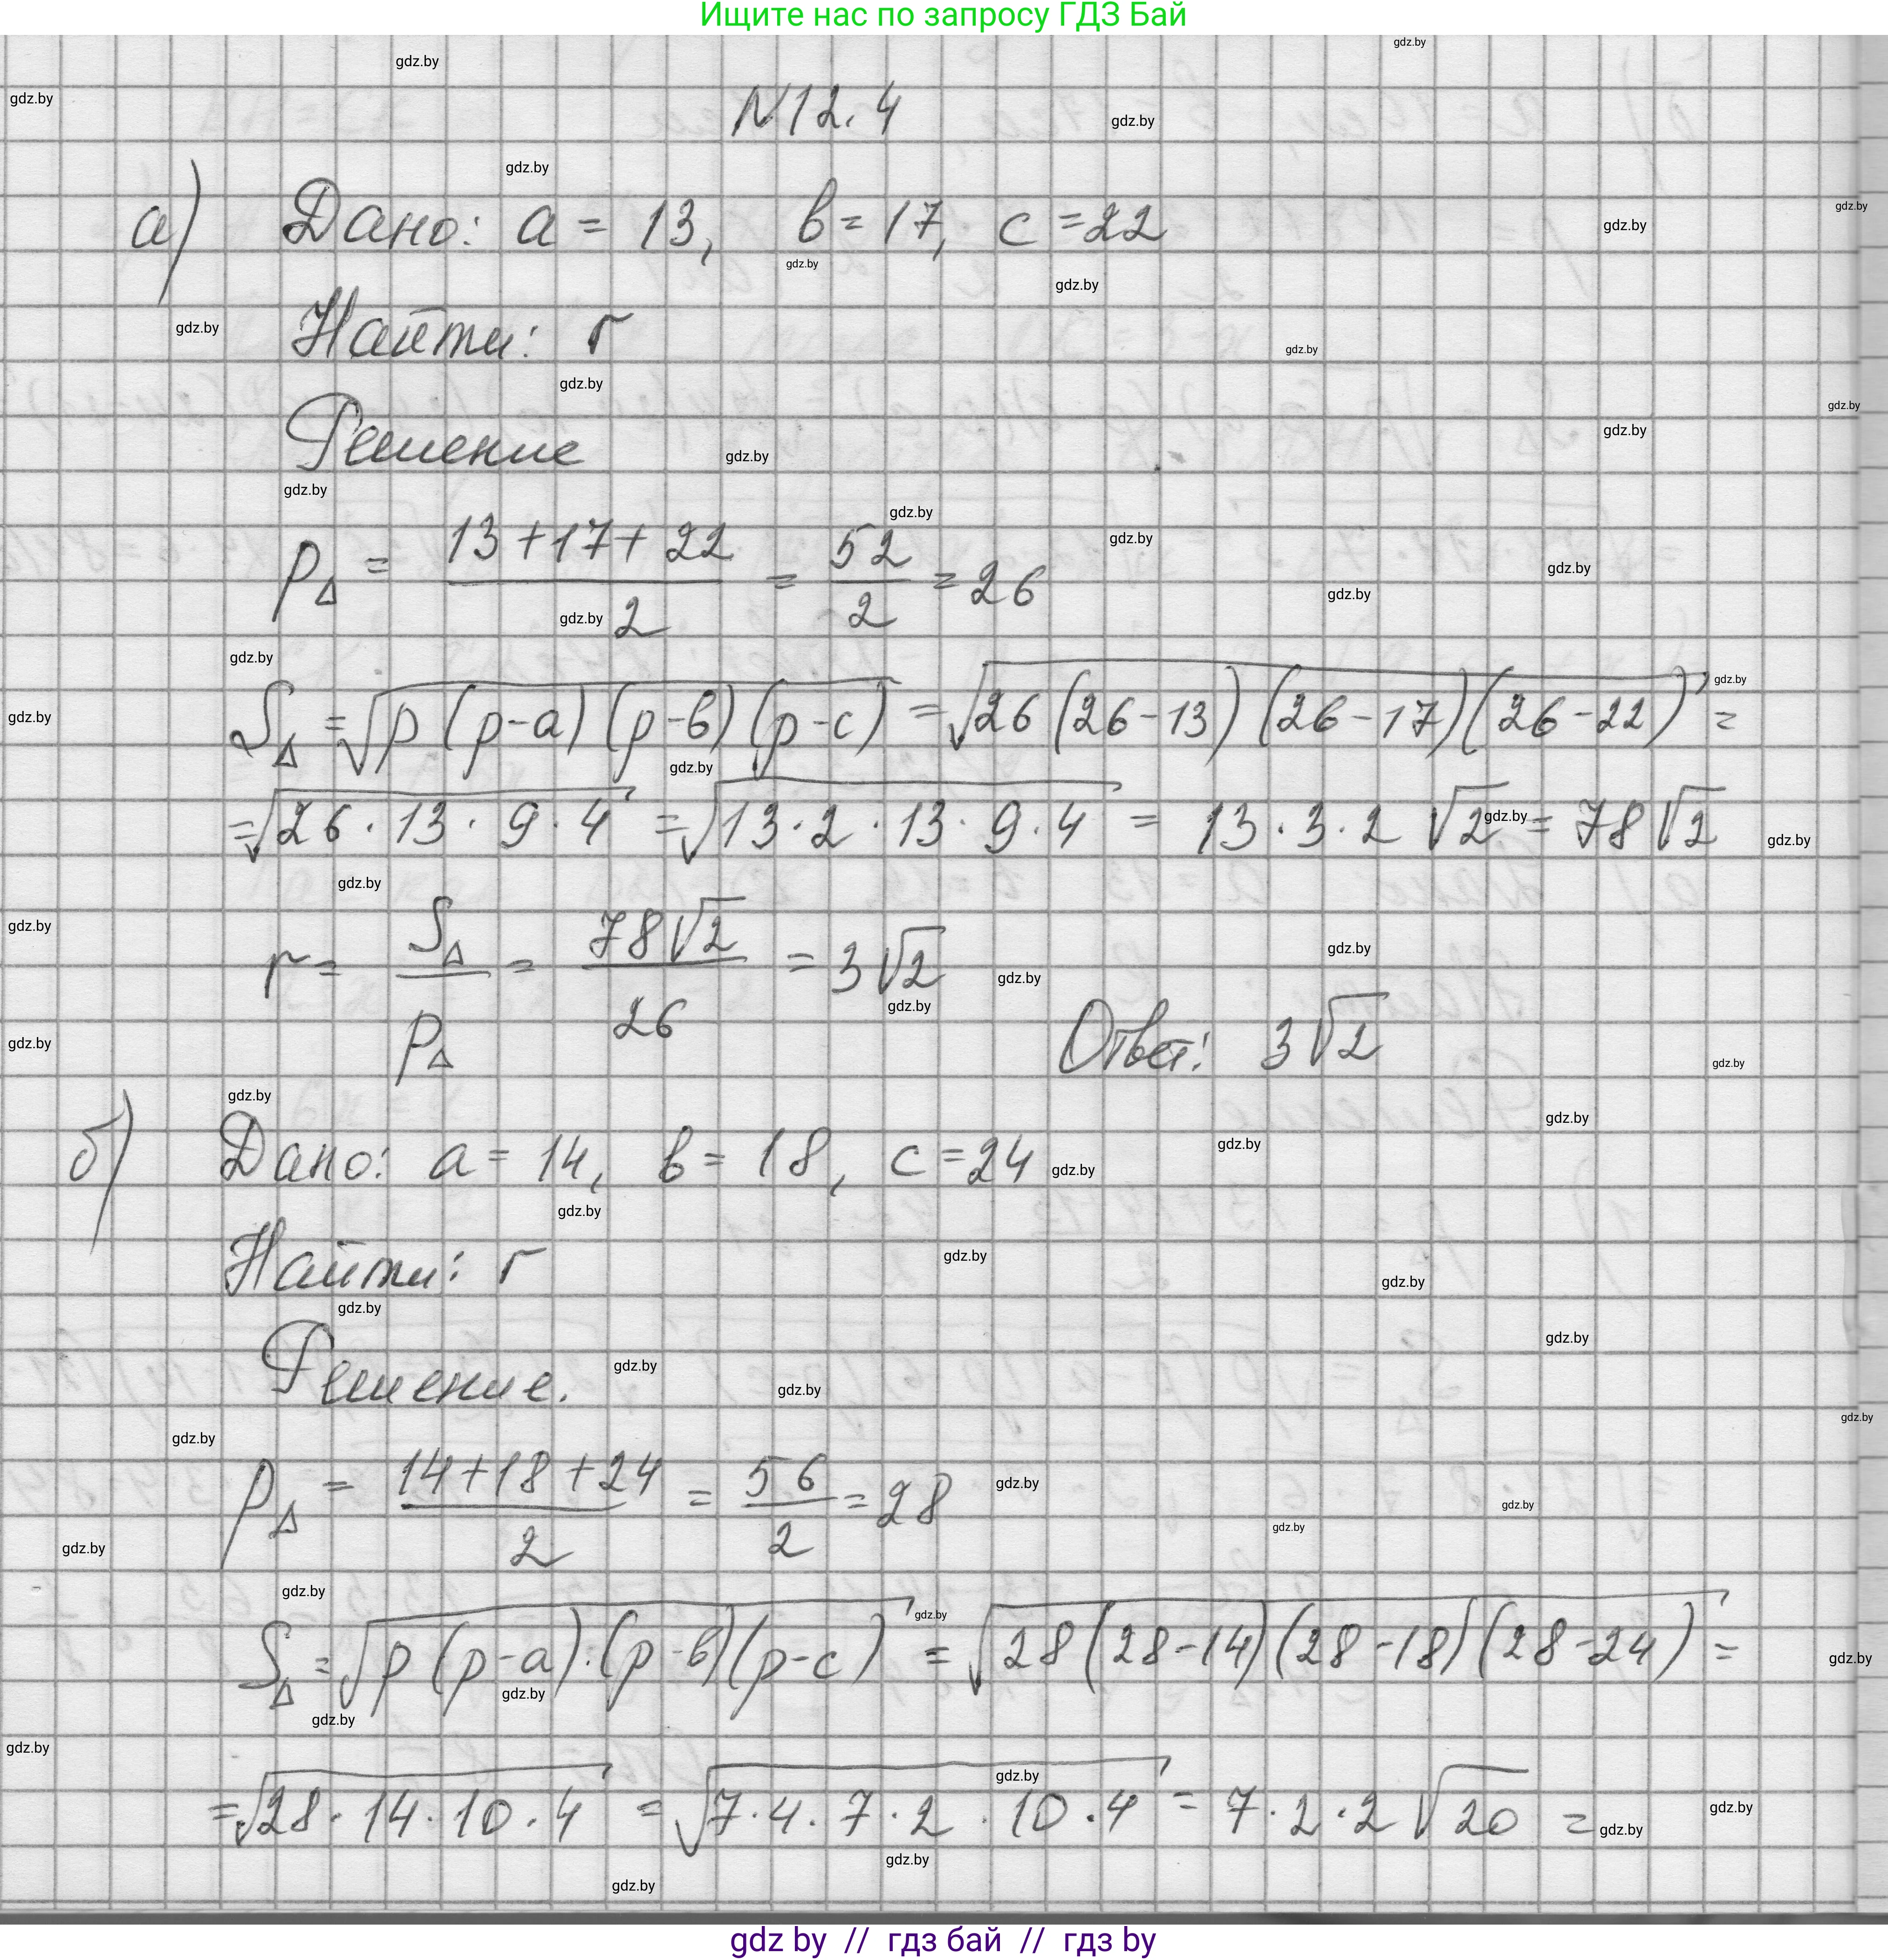 Ищите нас по запросу ГДЗ Бай
№12.4
а) Дано: a = 13, в = 17, c = 22
Найти: r
Решение
p△ = (13+17+22)/2 = 52/2 = 26
S△ = √(p(p-a)(p-в)(p-c)) = √(26(26-13)(26-17)(26-22)) =
= √(26·13·9·4) = √(13·2·13·9·4) = 13·3·2√2 = 78√2
r = S△/p△ = 78√2/26 = 3√2
Ответ: 3√2
б) Дано: a = 14, в = 18, c = 24
Найти: r
Решение.
p△ = (14+18+24)/2 = 56/2 = 28
S△ = √(p(p-a)·(p-в)(p-c)) = √(28(28-14)(28-18)(28-24)) =
= √(28·14·10·4) = √(7·4·7·2·10·4) = 7·2·2√20 =
gdz by // гдз бай // гдз by